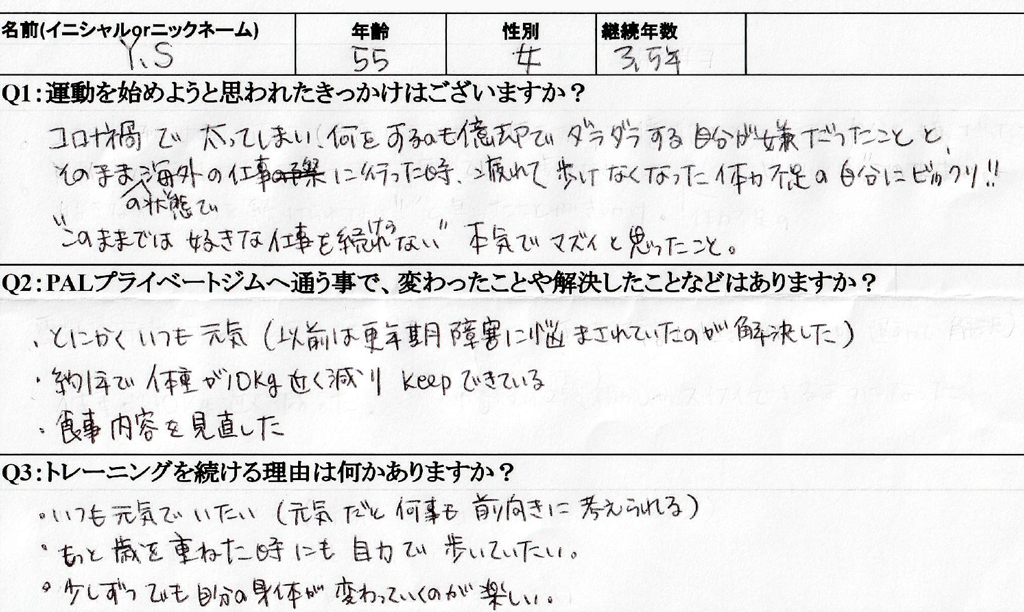 名前(イニシャルorニックネーム) 年齢 性別 継続年数
Y.S 55 女 3.5年
Q1:運動を始めようと思われたきっかけはございますか?
コロナ禍で太ってしまい、何をするのも億劫でダラダラする自分が嫌だったことと、
そのままの状態で海外の仕事に行った時、疲れて歩けなくなった体力不足の自分にビックリ!!
"このままでは好きな仕事を続けられない" 本気でマズイと思ったこと。
Q2:PALプライベートジムへ通う事で、変わったことや解決したことなどはありますか?
・とにかくいつも元気(以前は更年期障害に悩まされていたのが解決した)
・約1年で体重が10kg近く減り keepできている
・食事内容を見直した
Q3:トレーニングを続ける理由は何かありますか?
・いつも元気でいたい(元気だと何事も前向きに考えられる)
・もっと歳を重ねた時にも自力で歩いていたい。
・少しずつでも自分の身体が変わっていくのが楽しい。